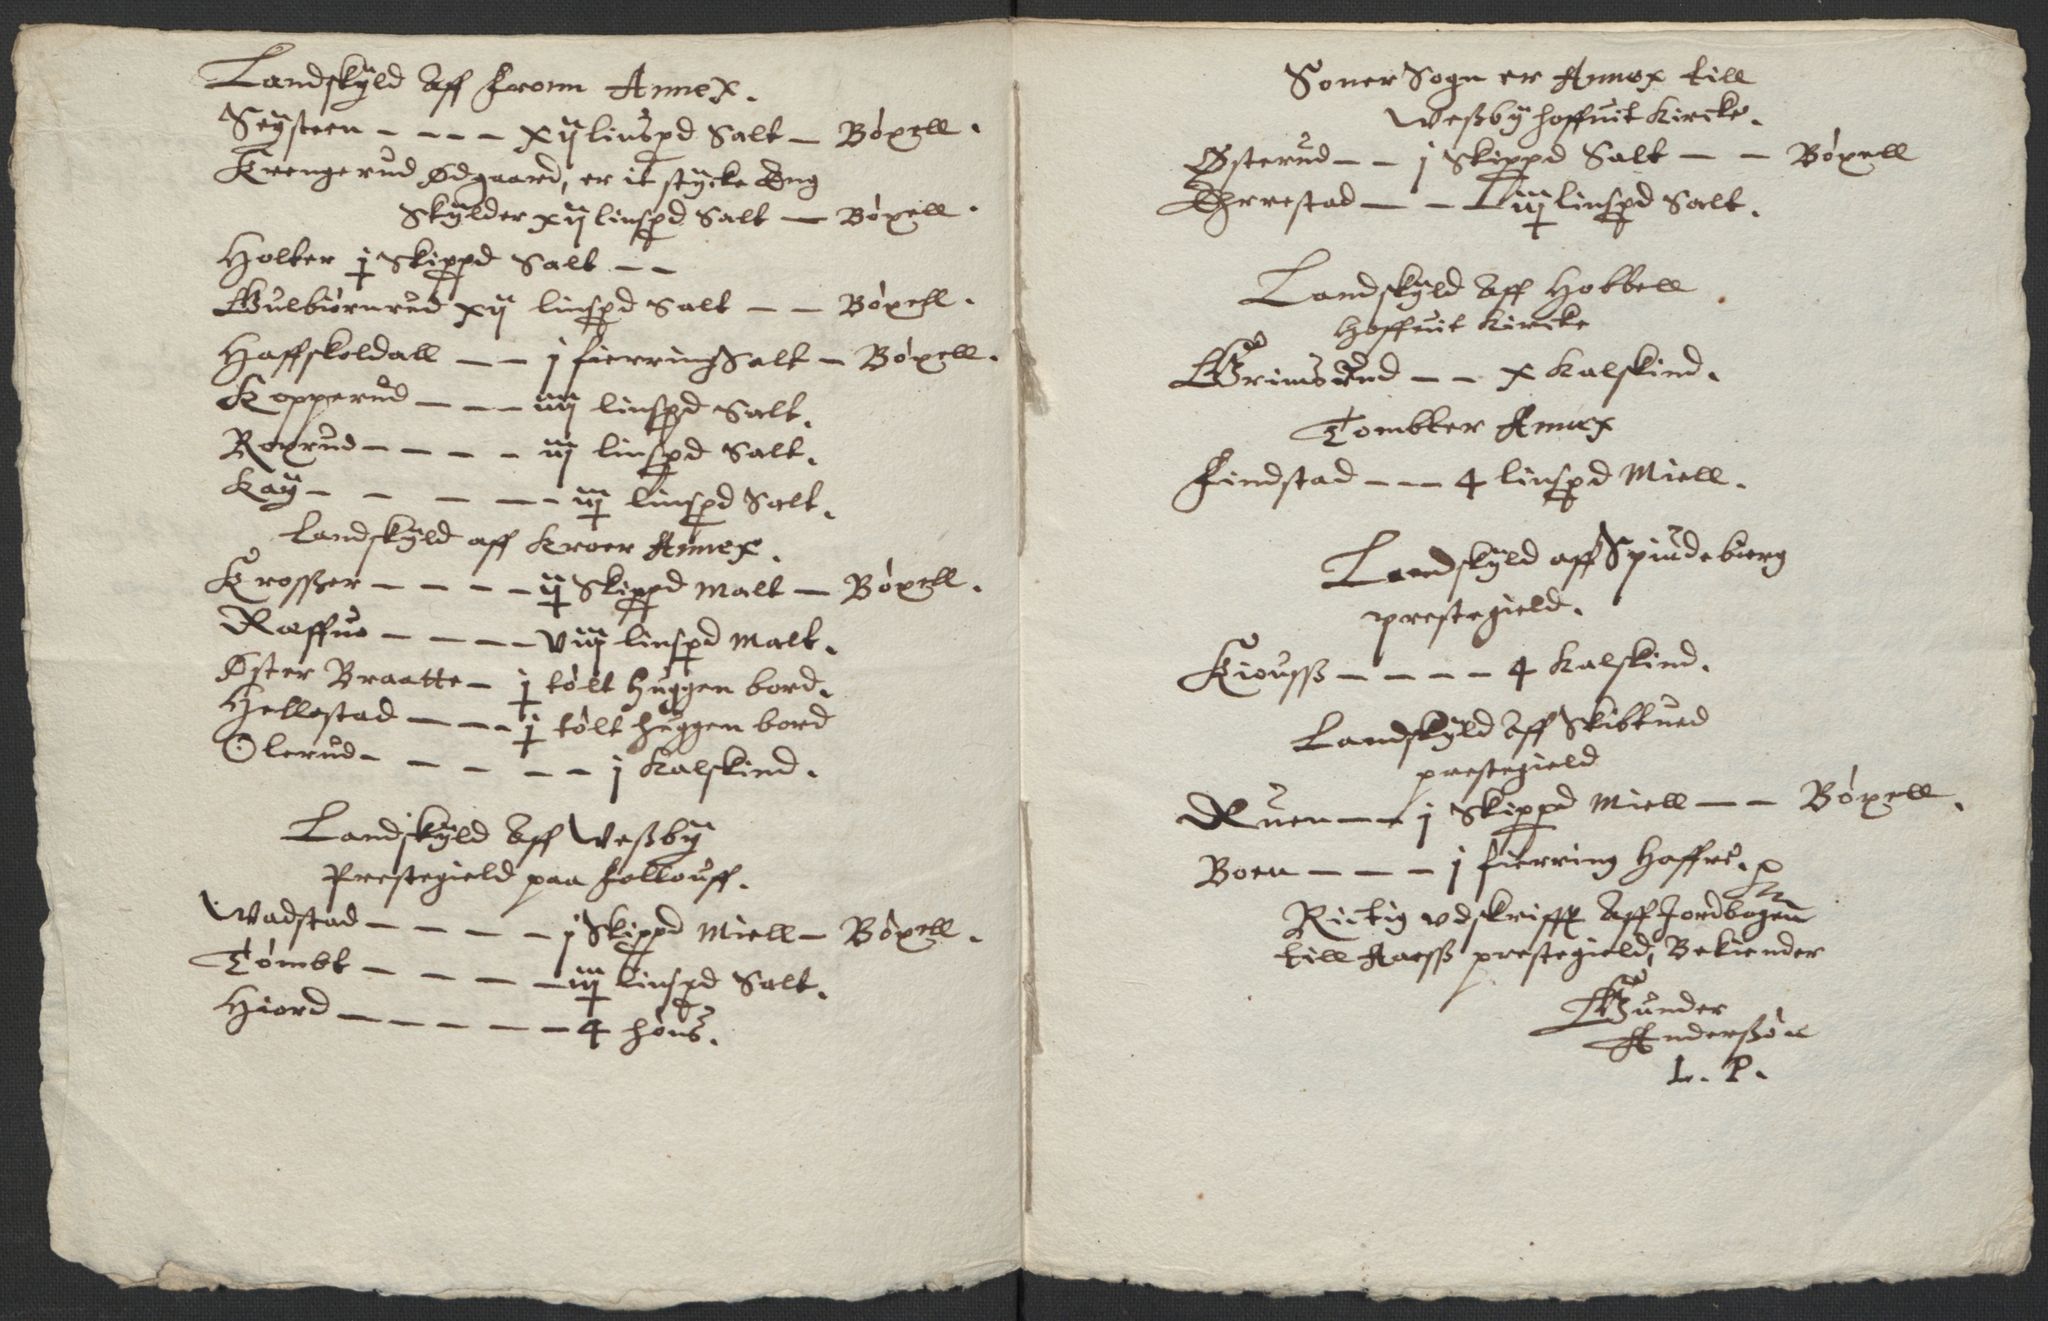 Landskÿld Aff Fronn Annex.
Seÿsteen - - - - xij linspd Salt - Bøxell.
Krengerud Ødgaard, er it stÿcke Eng
Skÿlder xij linspd Salt - Bøxell.
Holter j Skippd Salt - -
Gulbiørnrud xij linspd Salt - - Bøxell.
Haffskoldall - - j fierring Salt - Bøxell.
Kopperud - - - iiij linspd Salt.
Roxrud - - - - iij linspd Salt.
Kaÿ - - - - - iij linspd Salt.
Landskÿld aff Kroer Annex.
Krosser - - - - ij Skippd Malt - Bøxell.
Ræffue - - - - viij linspd Malt.
Øster Braatte - j tølt huggen bord.
Hellestad - - - j tølt huggen bord
Olerud - - - - - j Kalskind.
Landskÿld Aff Weßbÿ
Prestegield paa Follouff.
Wadstad - - - - j Skippd Miell - Bøxell.
Tømbt - - - - iij linspd Salt.
Hiord - - - - - 4 høns.
Soner Sogn er Annex till
Weßbÿ hoffuit Kircke.
Østerud - - j Skippd Salt - - Bøxell
Ehrrestad - - - iij linspd Salt.
Landskÿld Aff Hobbell
Hoffuit Kircke
Grimsrud - - x Kalskind.
Tombter Annex
Findstad - - - 4 linspd Miell.
Landskÿld aff Spindebierg
prestegield.
Kiouss - - - - 4 Kalskind.
Landskÿld Aff Skibtued
prestegield
Ruen - - j Skippd Miell - - Bøxell.
Boen - - - j fierring Haffre.
Rictig vdskrifft Aff Jordbogen
till Aaess prestegield, Bekiender
Gunder
Anderßøn
L. P.